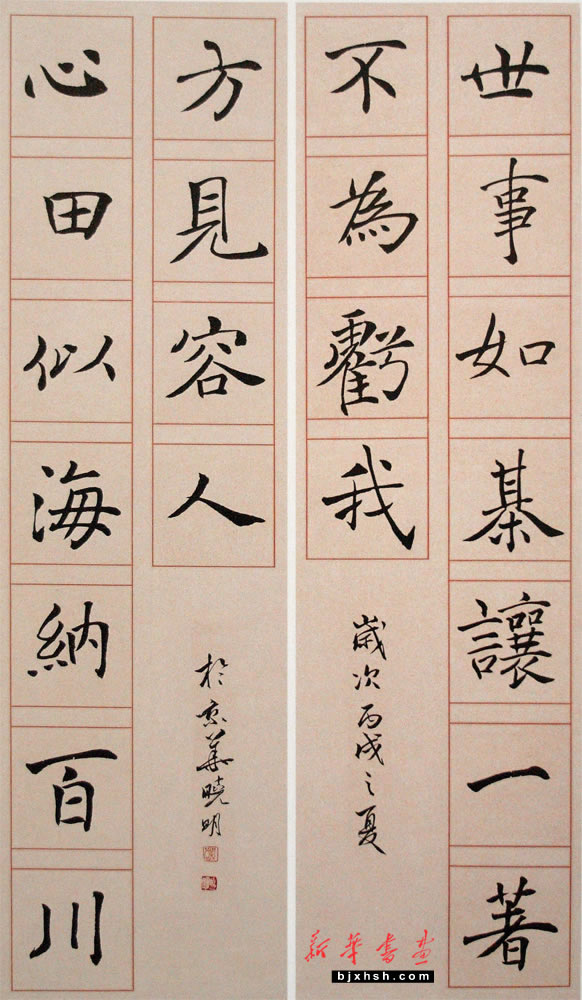 世事如棊讓一著
不為虧我
歲次丙戌之夏
心田似海納百川
方見容人
於京華曉明
新華書畫
bjxhsh.com